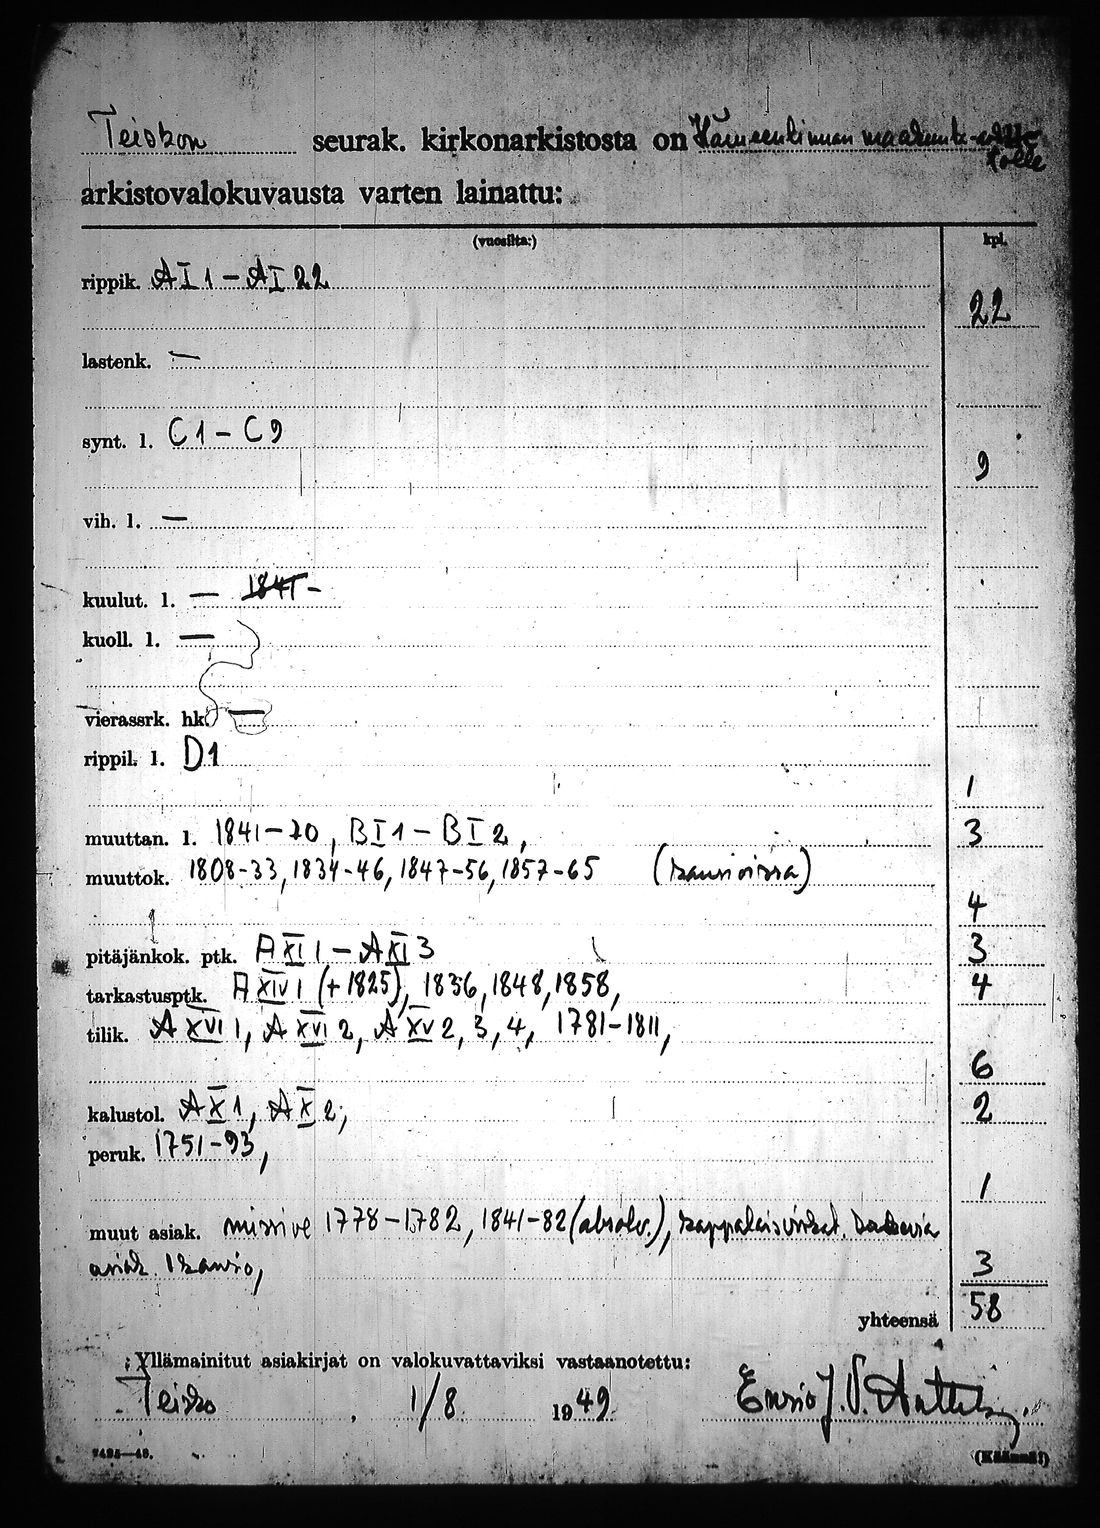 Teiskon seurak. kirkonarkistosta on Hämeenlinnan maakunta-
arkistovalokuvausta varten lainattu:
(vuosilta:) kpl.
rippik. A I 1 – A I 22
22
lastenk. —
synt. l. C1 – C9
9
vih. l. —
kuulut. l. — 1841 –
kuoll. l. —
vierassrk. hk. —
rippil. l. D1
1
muuttan. l. 1841–70, B I 1 – B I 2, 3
muuttok. 1808-33, 1834-46, 1847-56, 1857-65 (kansioissa)
4
pitäjänkok. ptk. A XI 1 – A XI 3 3
tarkastusptk. A XIV 1 (+ 1825), 1836, 1848, 1858, 4
tilik. A XVI 1, A XVI 2, A XV 2, 3, 4, 1781–1811,
6
kalustol. A X 1, A X 2, 2
peruk. 1751–93,
1
muut asiak. missive 1778–1782, 1841–82 (absolv.), kappalaisvirkat. koskevia
asiak. 1 kansio, 3
yhteensä 58
Yllämainitut asiakirjat on valokuvattaviksi vastaanotettu:
Teisko 1/8 1949. Ensio J. V.
(Käännä!)